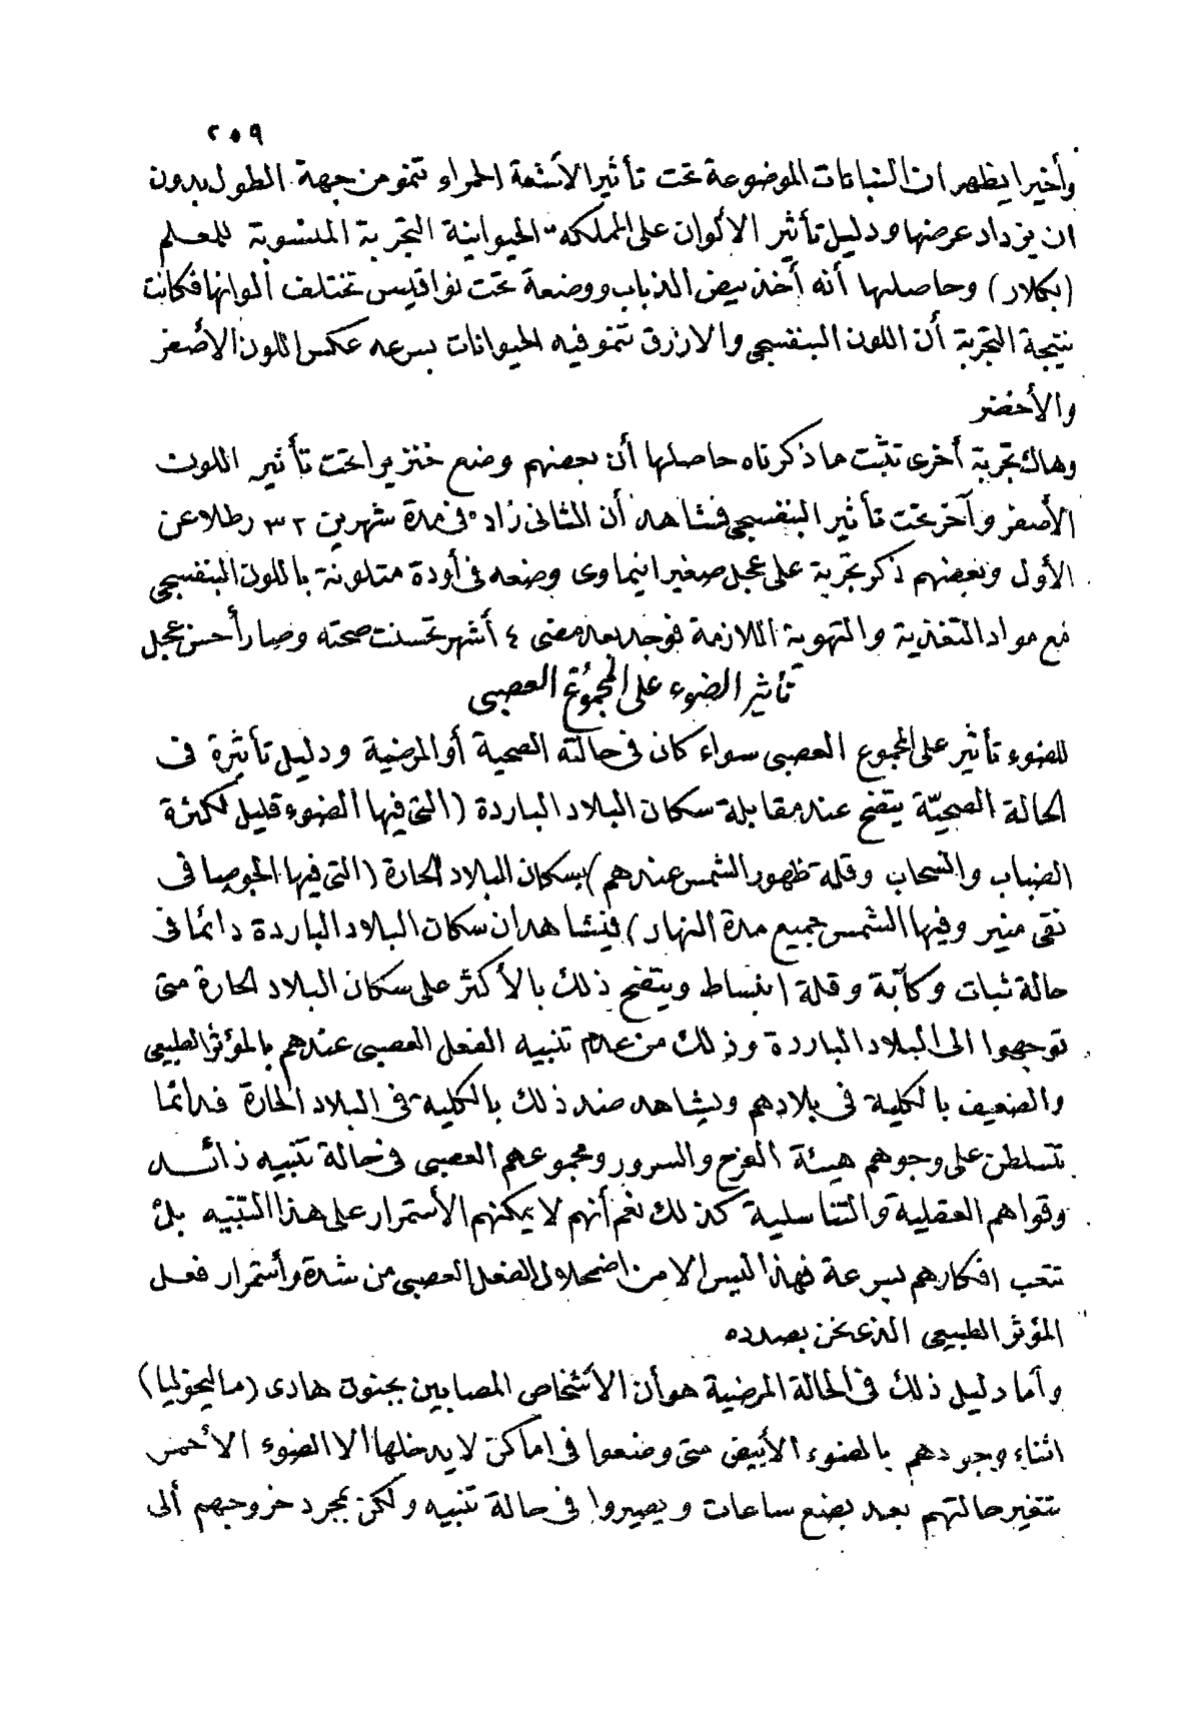 ٢٥٩
وأخيرا يظهر ان النباتات الموضوعة تحت تأثير الأشعة الحمراء تنمو من جهة الطول بدون
ان يزداد عرضها ودليل تأثير الألوان على المملكه الحيوانية التجربة المنسوبة للمعلم
(بكلار) وحاصلها أنه أخذ بيض الذباب ووضعة تحت نواقيس تختلف ألوانها فكانت
نتيجة التجربة أن اللون البنفسجى والازرق تنمو فيه الحيوانات بسرعه عكس اللون الأصفر
والأخضر
وهاك تجربة أخرى تثبت ما ذكرناه حاصلها أن بعضهم وضع خنزيرا تحت تأثير اللون
الأصفر وآخر تحت تأثير البنفسجى فشاهد أن الثانى زاد فى مدة شهرين ٣٢ رطلا عن
الأول وبعضهم ذكر تجربة على عجل صغير انيماوى وضعه فى أودة متلونة باللون البنفسجى
مع مواد التغذية والتهوية اللازمة فوجد بعد مضى ٤ أشهر تحسنت صحته وصار أحسن عجل
تأثير الضوء على المجموع العصبى
للضوء تأثير على المجموع العصبى سواء كان فى حالته الصحية أو المرضية ودليل تأثيرة فى
الحالة الصحيّة يتضح عند مقابلة سكان البلاد الباردة (التى فيها الضوء قليل لكثرة
الضباب والسحاب وقلة ظهور الشمس عندهم) بسكان البلاد الحارة (التى فيها الجو صافى
نقى منير وفيها الشمس جميع مدة النهار) فيشاهد ان سكان البلاد الباردة دائما فى
حالة ثبات وكآبة وقلة انبساط ويتضح ذلك بالأكثر على سكان البلاد الحارة متى
توجهوا الى البلاد الباردة وذلك من عدم تنبيه الفعل العصبى عندهم بالمؤثر الطبيعى
والضعيف بالكلية فى بلادهم ويشاهد ضد ذلك بالكلية فى البلاد الحارة فدائما
تتسلطن على وجوهم هيئة الفرح والسرور ومجموعهم العصبى فى حالة تنبيه زائد
وقواهم العقلية والتناسلية كذلك نعم أنهم لا يمكنهم الأستمرار على هذا التنبيه بل
تتعب افكارهم بسرعة فهذا ليس الا من اضمحلال الفعل العصبى من شدة وأستمرار فعل
المؤثر الطبيعى الذى نحن بصدده
وأما دليل ذلك فى الحالة المرضية هو أن الأشخاص المصابين بجنون هادى (ماليخوليا)
اثناء وجودهم بالضوء الأبيض متى وضعوا فى اماكن لا يدخلها الا الضوء الأحمر
تتغير حالتهم بعد بضع ساعات ويصيروا فى حالة تنبيه ولكن بمجرد خروجهم ألى